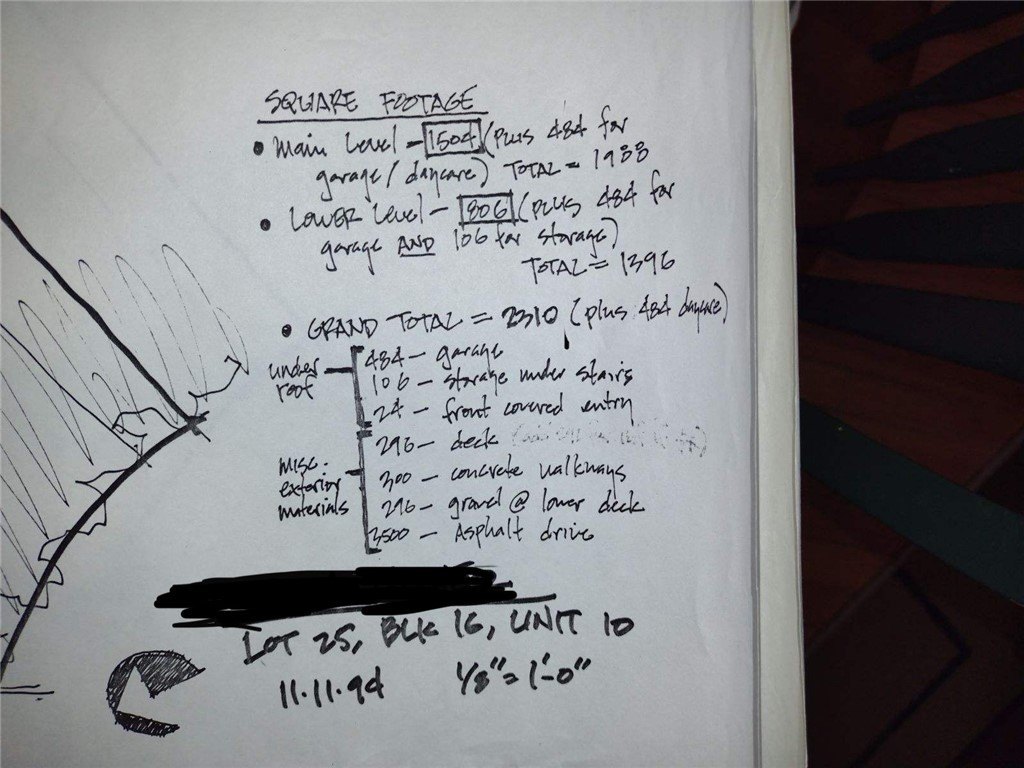 SQUARE FOOTAGE
• Main Level - 1504 (plus 484 for
garage/daycare) TOTAL = 1988
• LOWER Level - 806 (plus 484 for
garage AND 106 for storage)
TOTAL = 1396
• GRAND TOTAL = 2310 (plus 484 daycare)
under roof
484 - garage
106 - storage under stairs
24 - front covered entry
misc. exterior materials
296 - deck
300 - concrete walkways
296 - gravel @ lower deck
3500 - Asphalt drive
LOT 25, BLK 16, UNIT 10
11.11.94 1/8" = 1'-0"